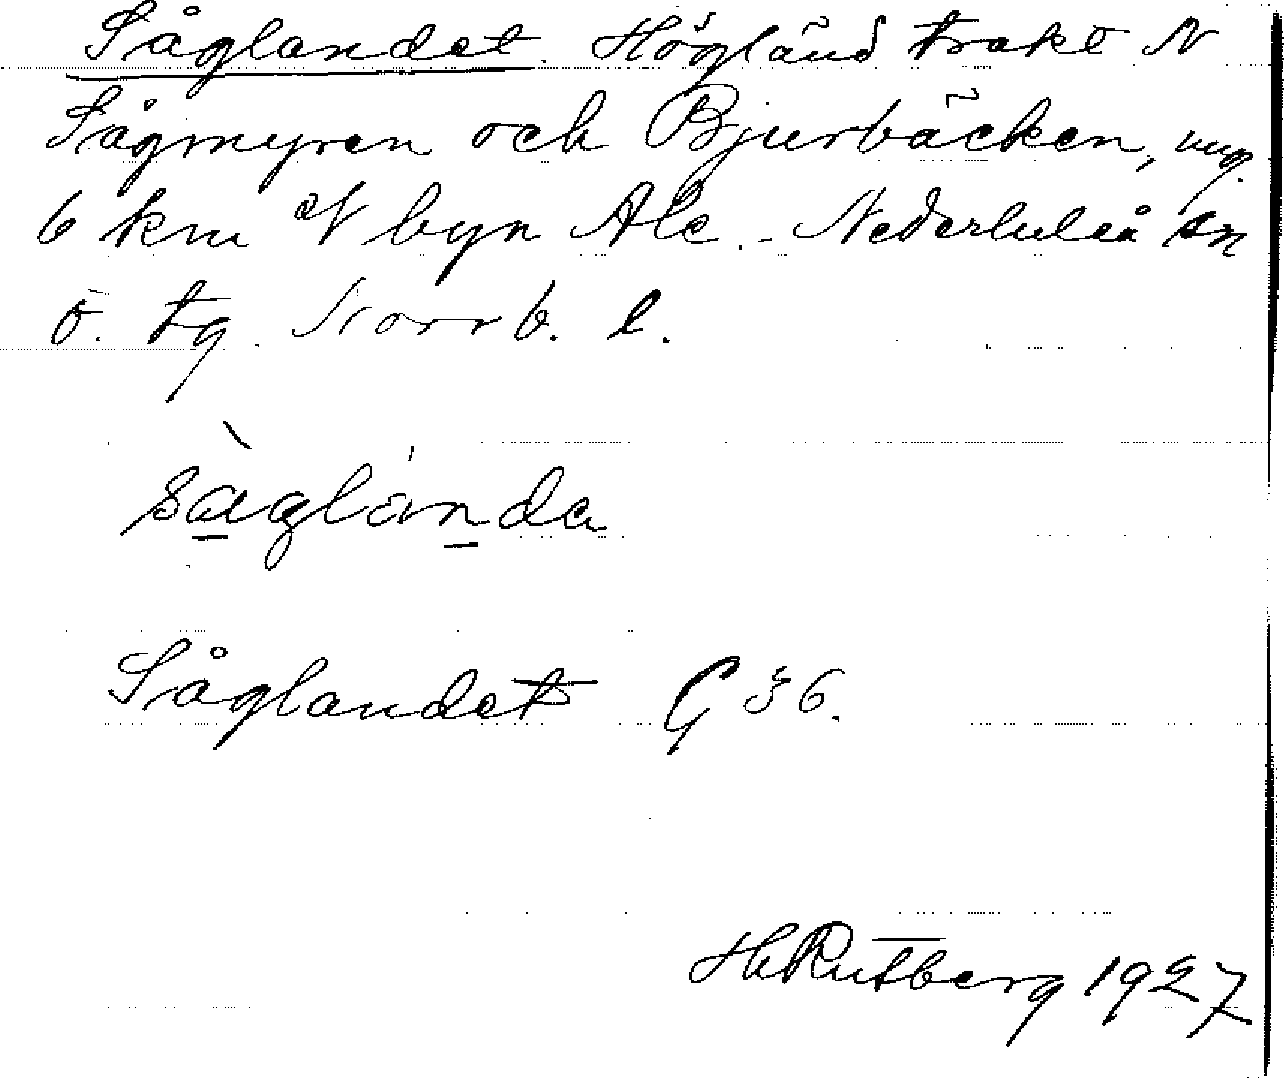 Såglandet. Högländ trakt N
Sågmyren och Bjurbäcken, ung.
6 km N byn Ale. - Nederluleå sn
ö. tg. Norrb. l.
sàglánda
Såglandet G § 6.
H. Rutberg 1927